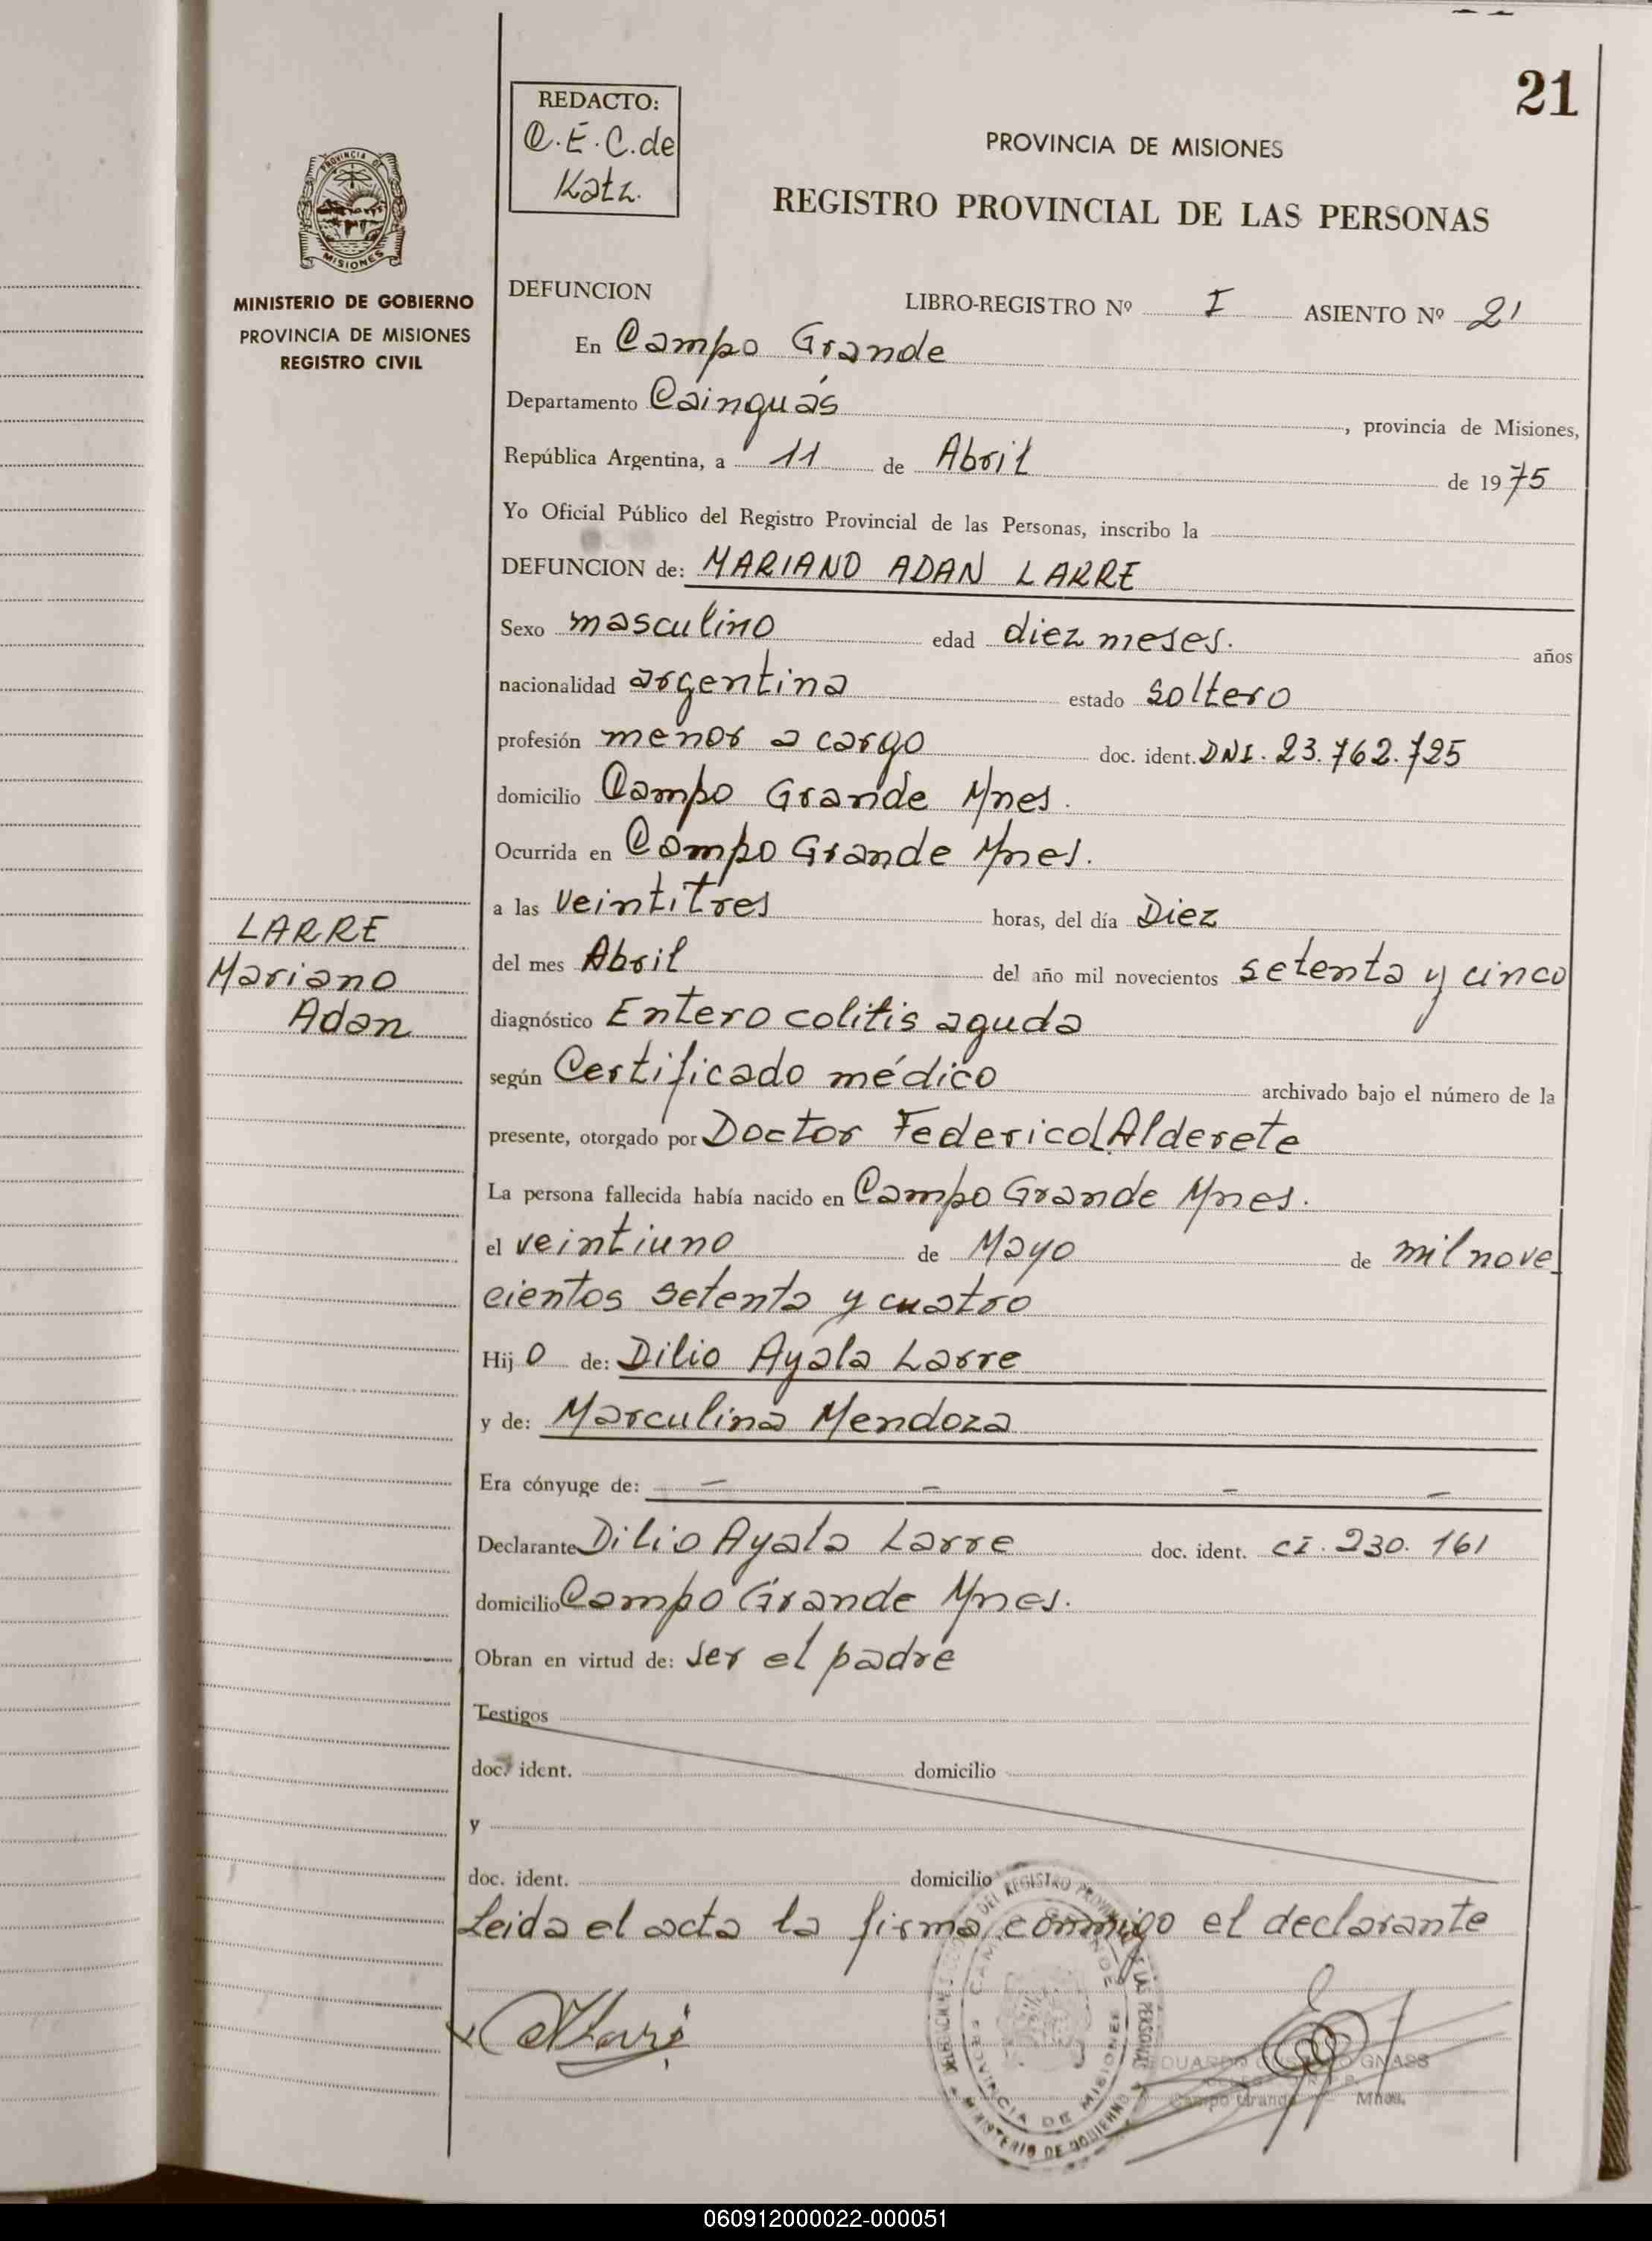 21
REDACTO:
C.E.C.de
Katz.
PROVINCIA DE MISIONES
REGISTRO PROVINCIAL DE LAS PERSONAS
PROVINCIA DE
MISIONES
MINISTERIO DE GOBIERNO
PROVINCIA DE MISIONES
REGISTRO CIVIL
DEFUNCION LIBRO-REGISTRO Nº I ASIENTO Nº 21
En Campo Grande
Departamento Cainguás, provincia de Misiones,
República Argentina, a 11 de Abril de 1975
Yo Oficial Público del Registro Provincial de las Personas, inscribo la
DEFUNCION de: MARIANO ADAN LARRE
Sexo masculino edad diez meses. años
nacionalidad argentina estado soltero
profesión menor a cargo doc. ident. DNI. 23.762.725
domicilio Campo Grande Mnes.
Ocurrida en Campo Grande Mnes.
a las veintitres horas, del día Diez
del mes Abril del año mil novecientos setenta y cinco
diagnóstico Entero colitis aguda
según Certificado médico archivado bajo el número de la
presente, otorgado por Doctor Federico L. Alderete
La persona fallecida había nacido en Campo Grande Mnes.
el veintiuno de Mayo de mil nove
cientos setenta y cuatro
Hij o de: Dilio Ayala Larre
y de: Marculina Mendoza
Era cónyuge de: – – – –
Declarante Dilio Ayala Larre doc. ident. CI. 230.161
domicilio Campo Grande Mnes.
Obran en virtud de: ser el padre
Testigos
doc. ident. domicilio
y
doc. ident. domicilio
Leida el acta la firma conmigo el declarante
LARRE
Mariano
Adan
DEL REGISTRO PROVINCIAL DE LAS PERSONAS
CAMPO GRANDE
PROVINCIA DE MISIONES
MINISTERIO DE GOBIERNO
EDUARDO GUSTAVO GNASS
Campo Grande Mnes.
060912000022-000051